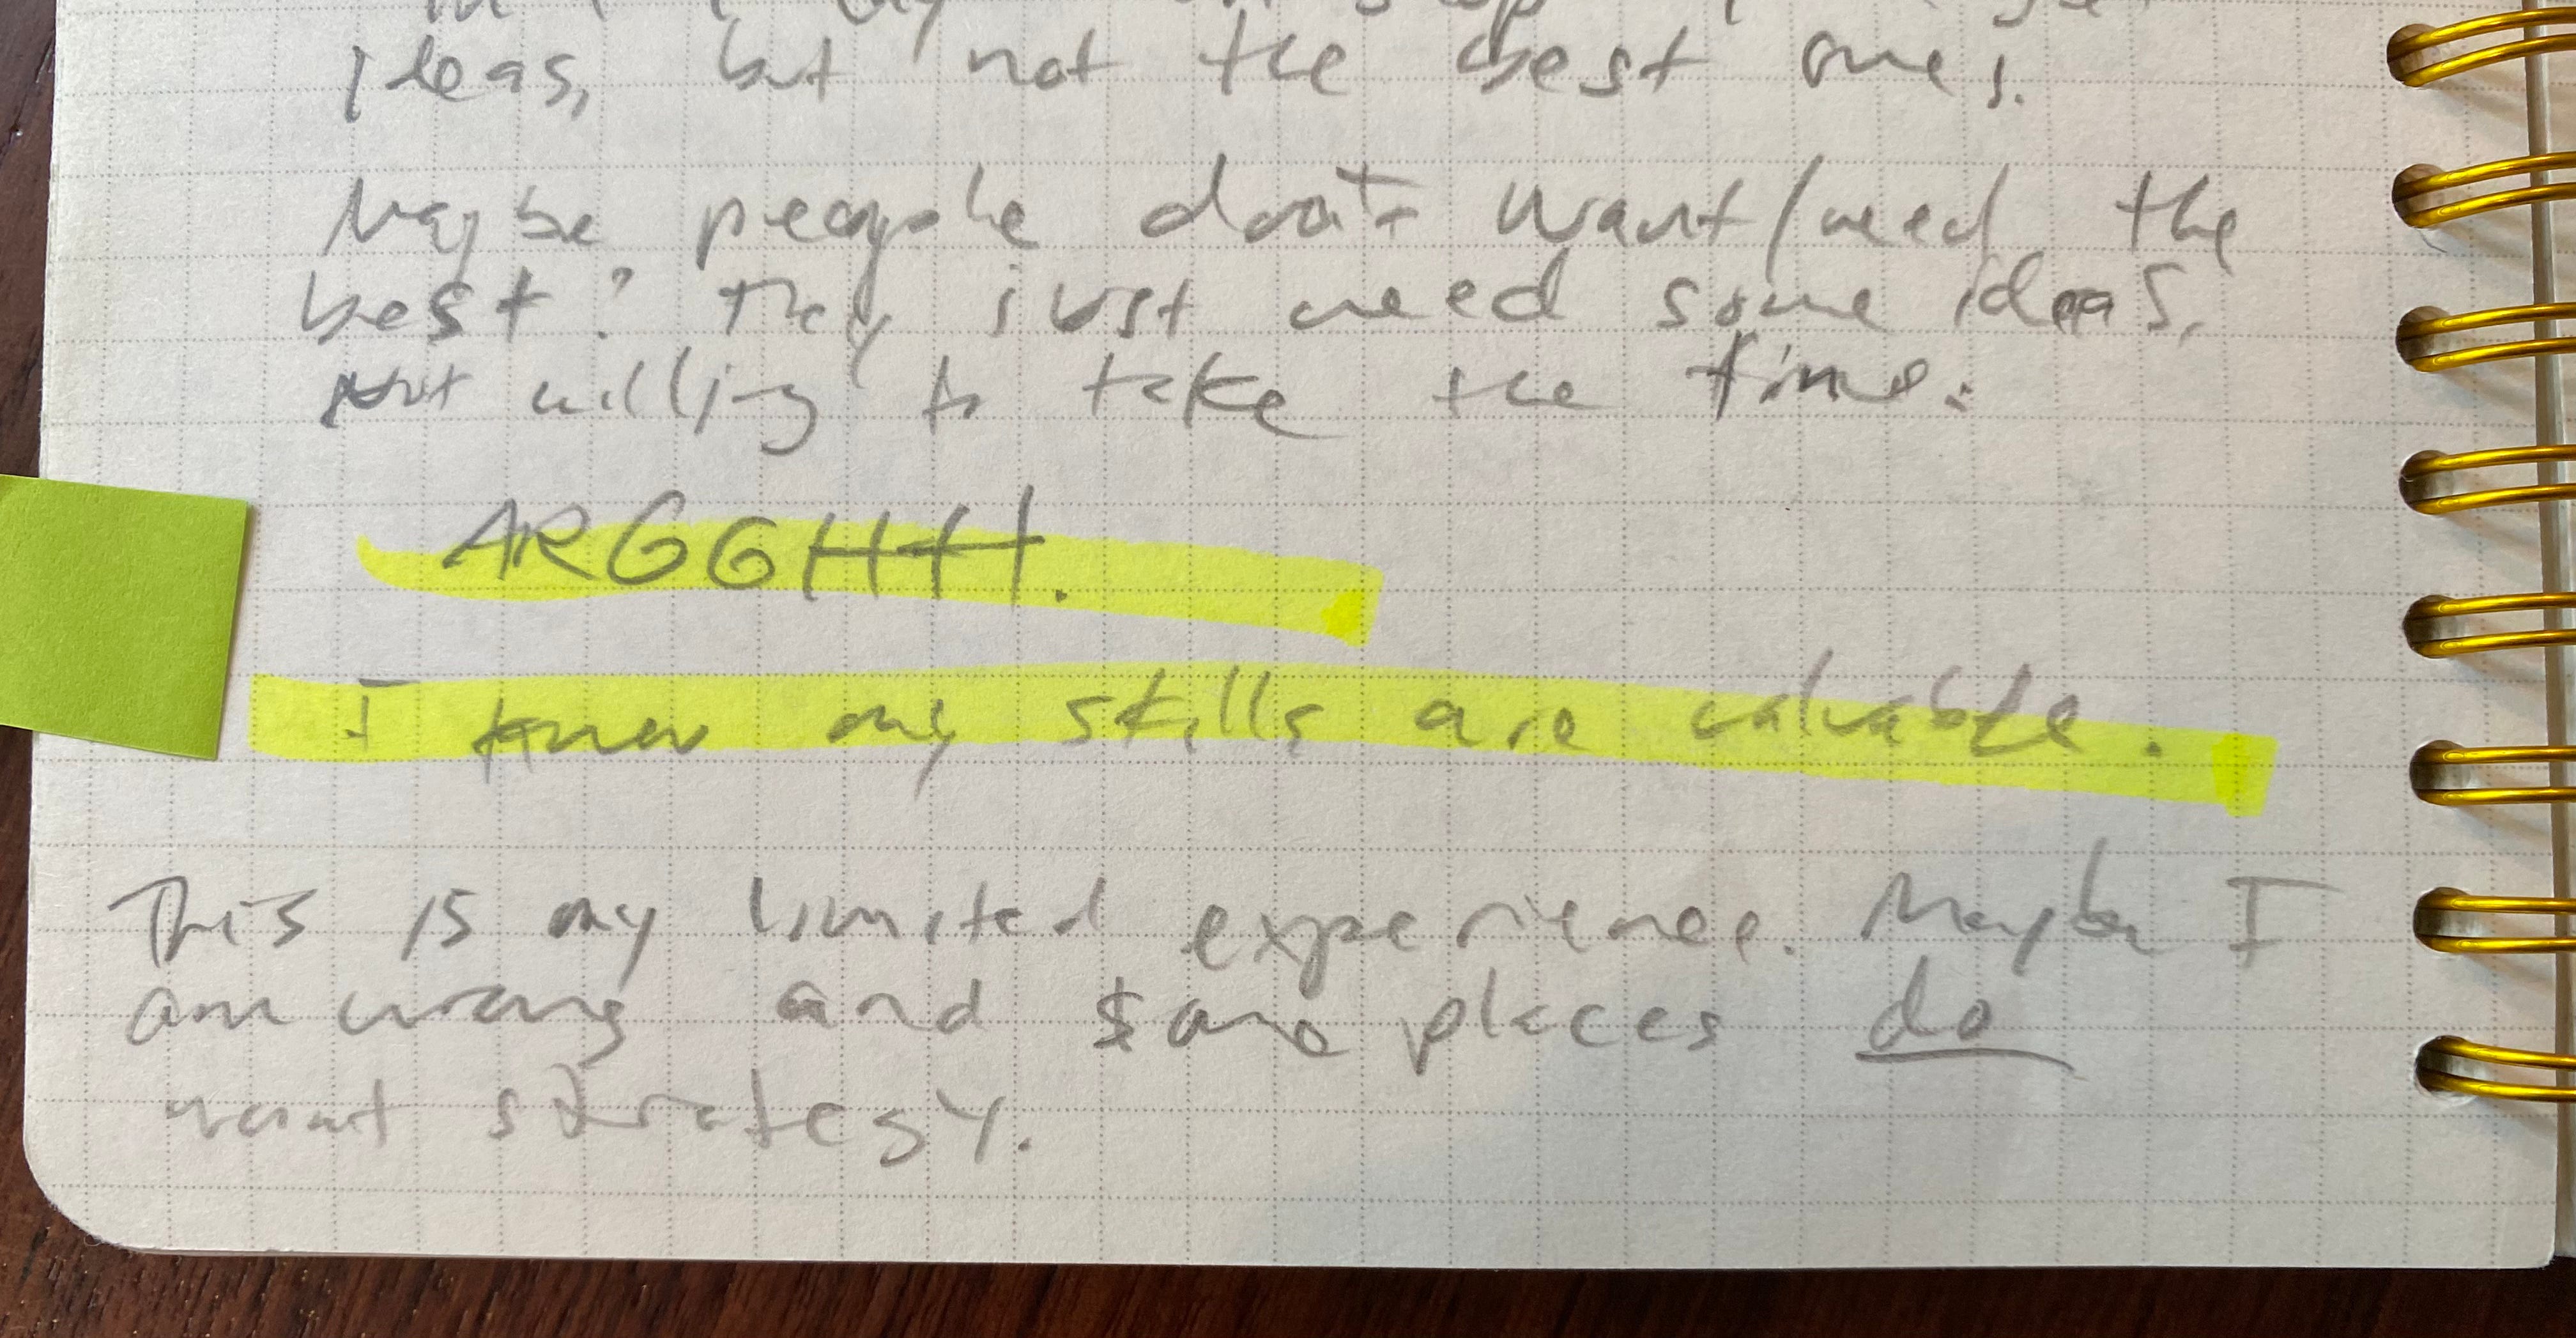 ideas, but not the best ones.
Maybe people don't want/need the
best? They just need some ideas,
not willing to take the time.
ARGGHH.
I know my skills are valuable.
This is my limited experience. Maybe I
am wrong and some places do
want strategy.